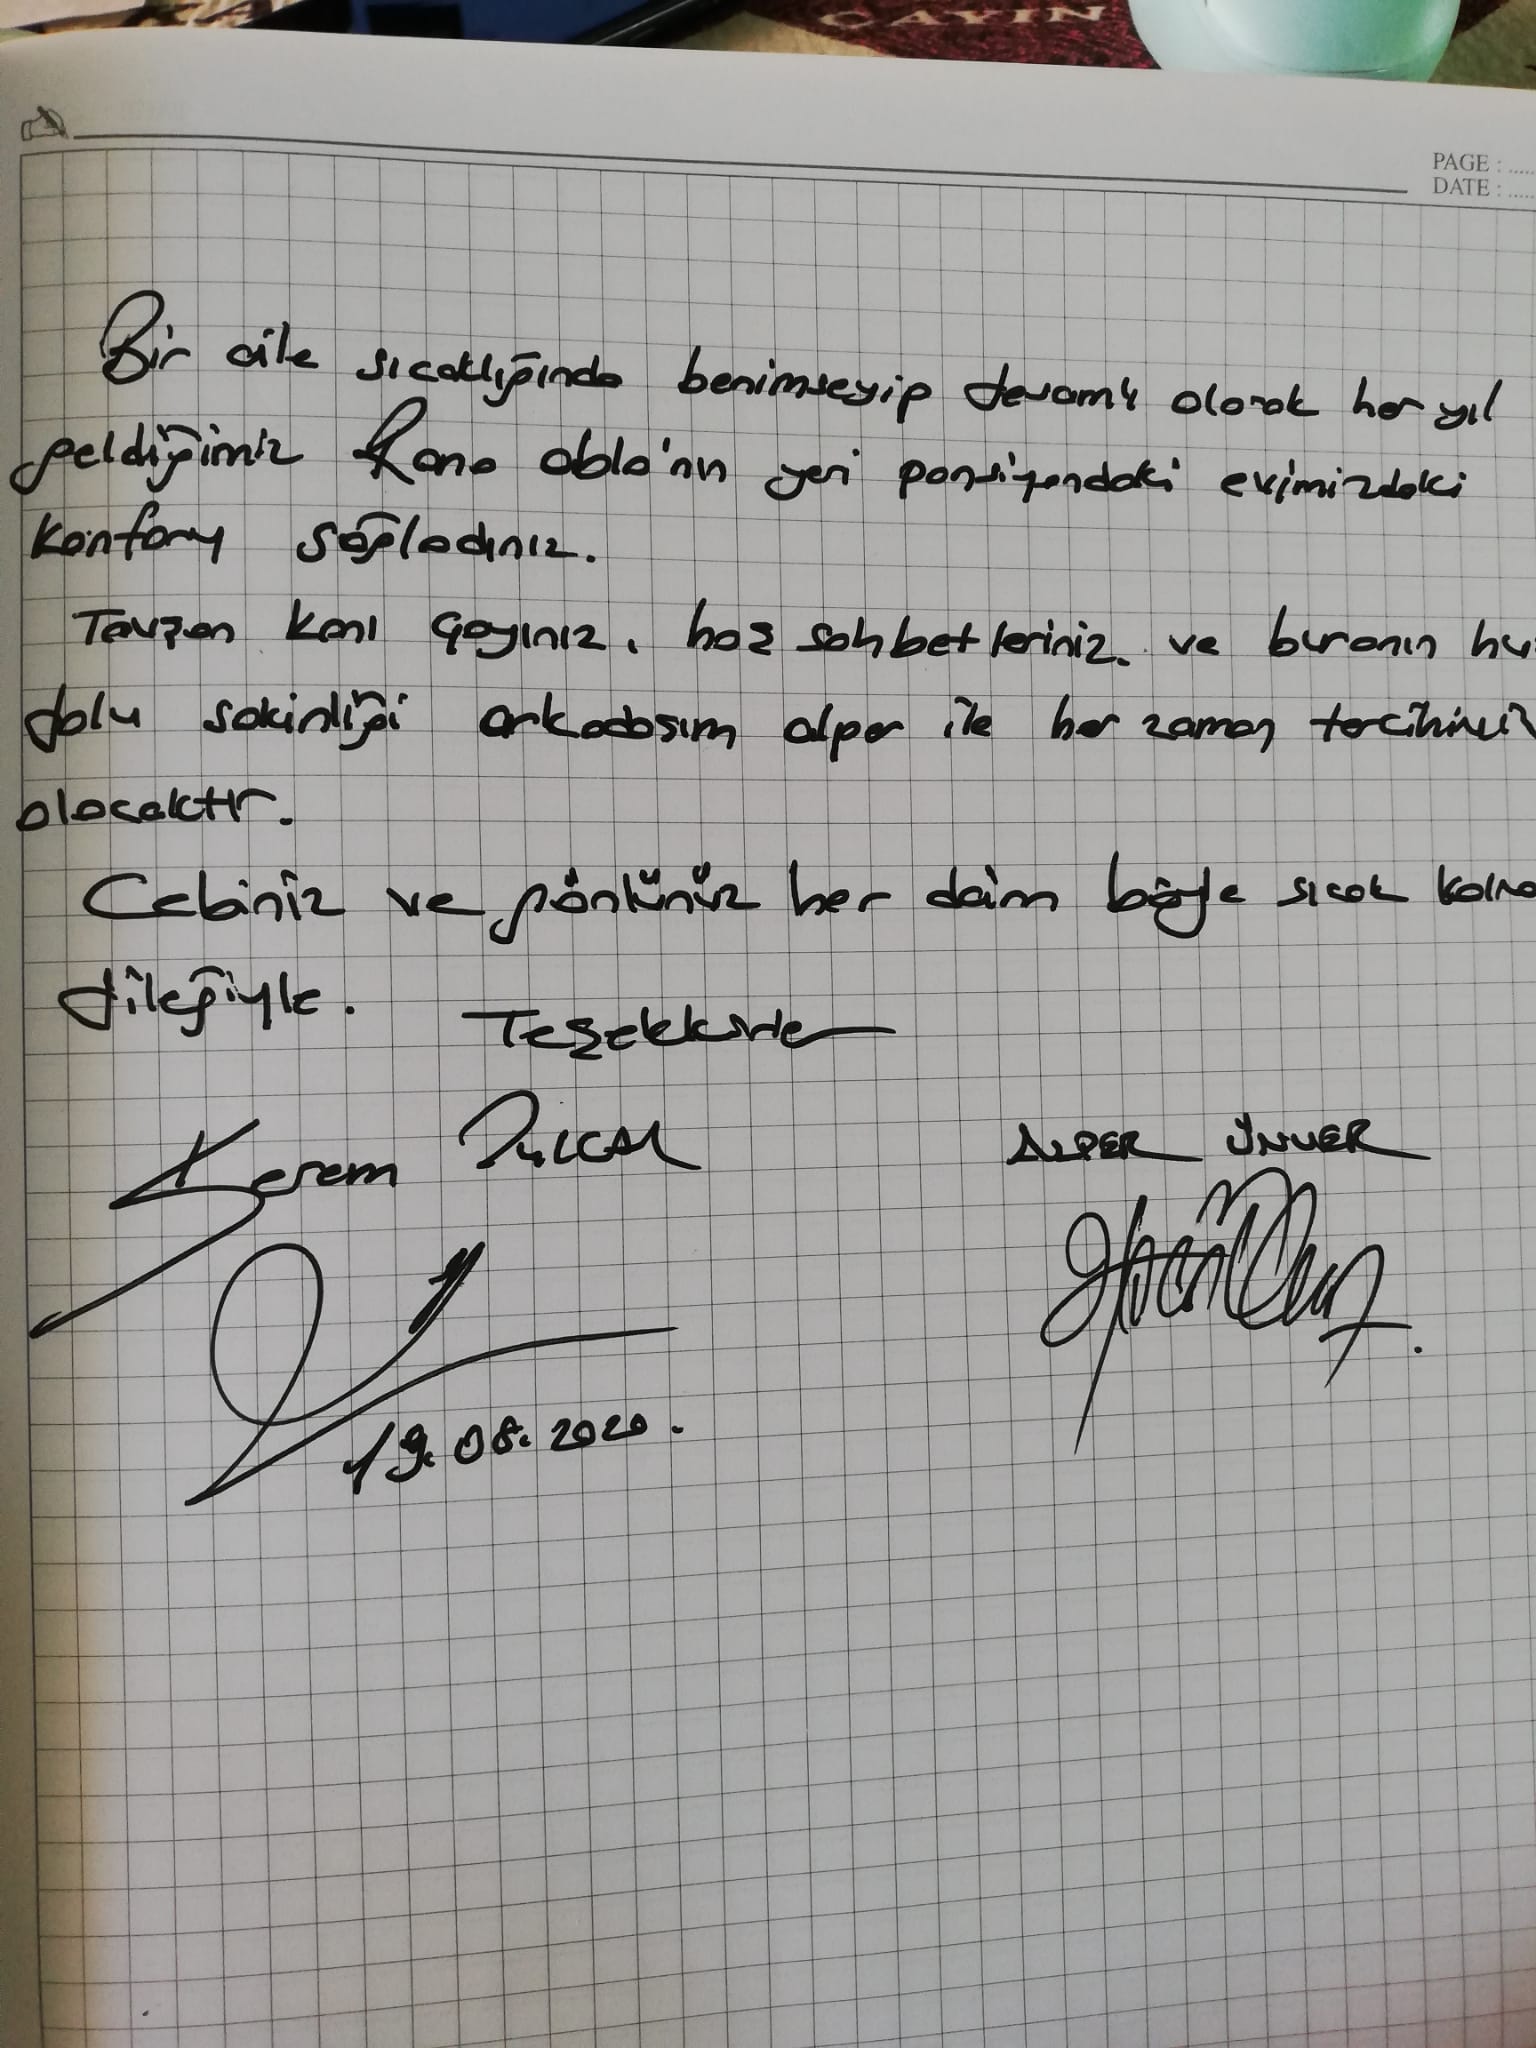 CAYIN
PAGE :
DATE :
Bir aile sıcaklığında benimseyip devamlı olarak her yıl
geldiğimiz Rana abla'nın yeri pansiyondaki evimizdeki
konforu sağladınız.
Tavşan kanı çayınız, hoş sohbetleriniz. ve buranın hu
dolu sakinliği arkadaşım alper ile her zaman tercihimiz
olacaktır.
Cebiniz ve gönlünüz her daim böyle sıcak kalma
dileğiyle.
Teşekkürler
Kerem
ALPER ÜNVER
19.08.2020.